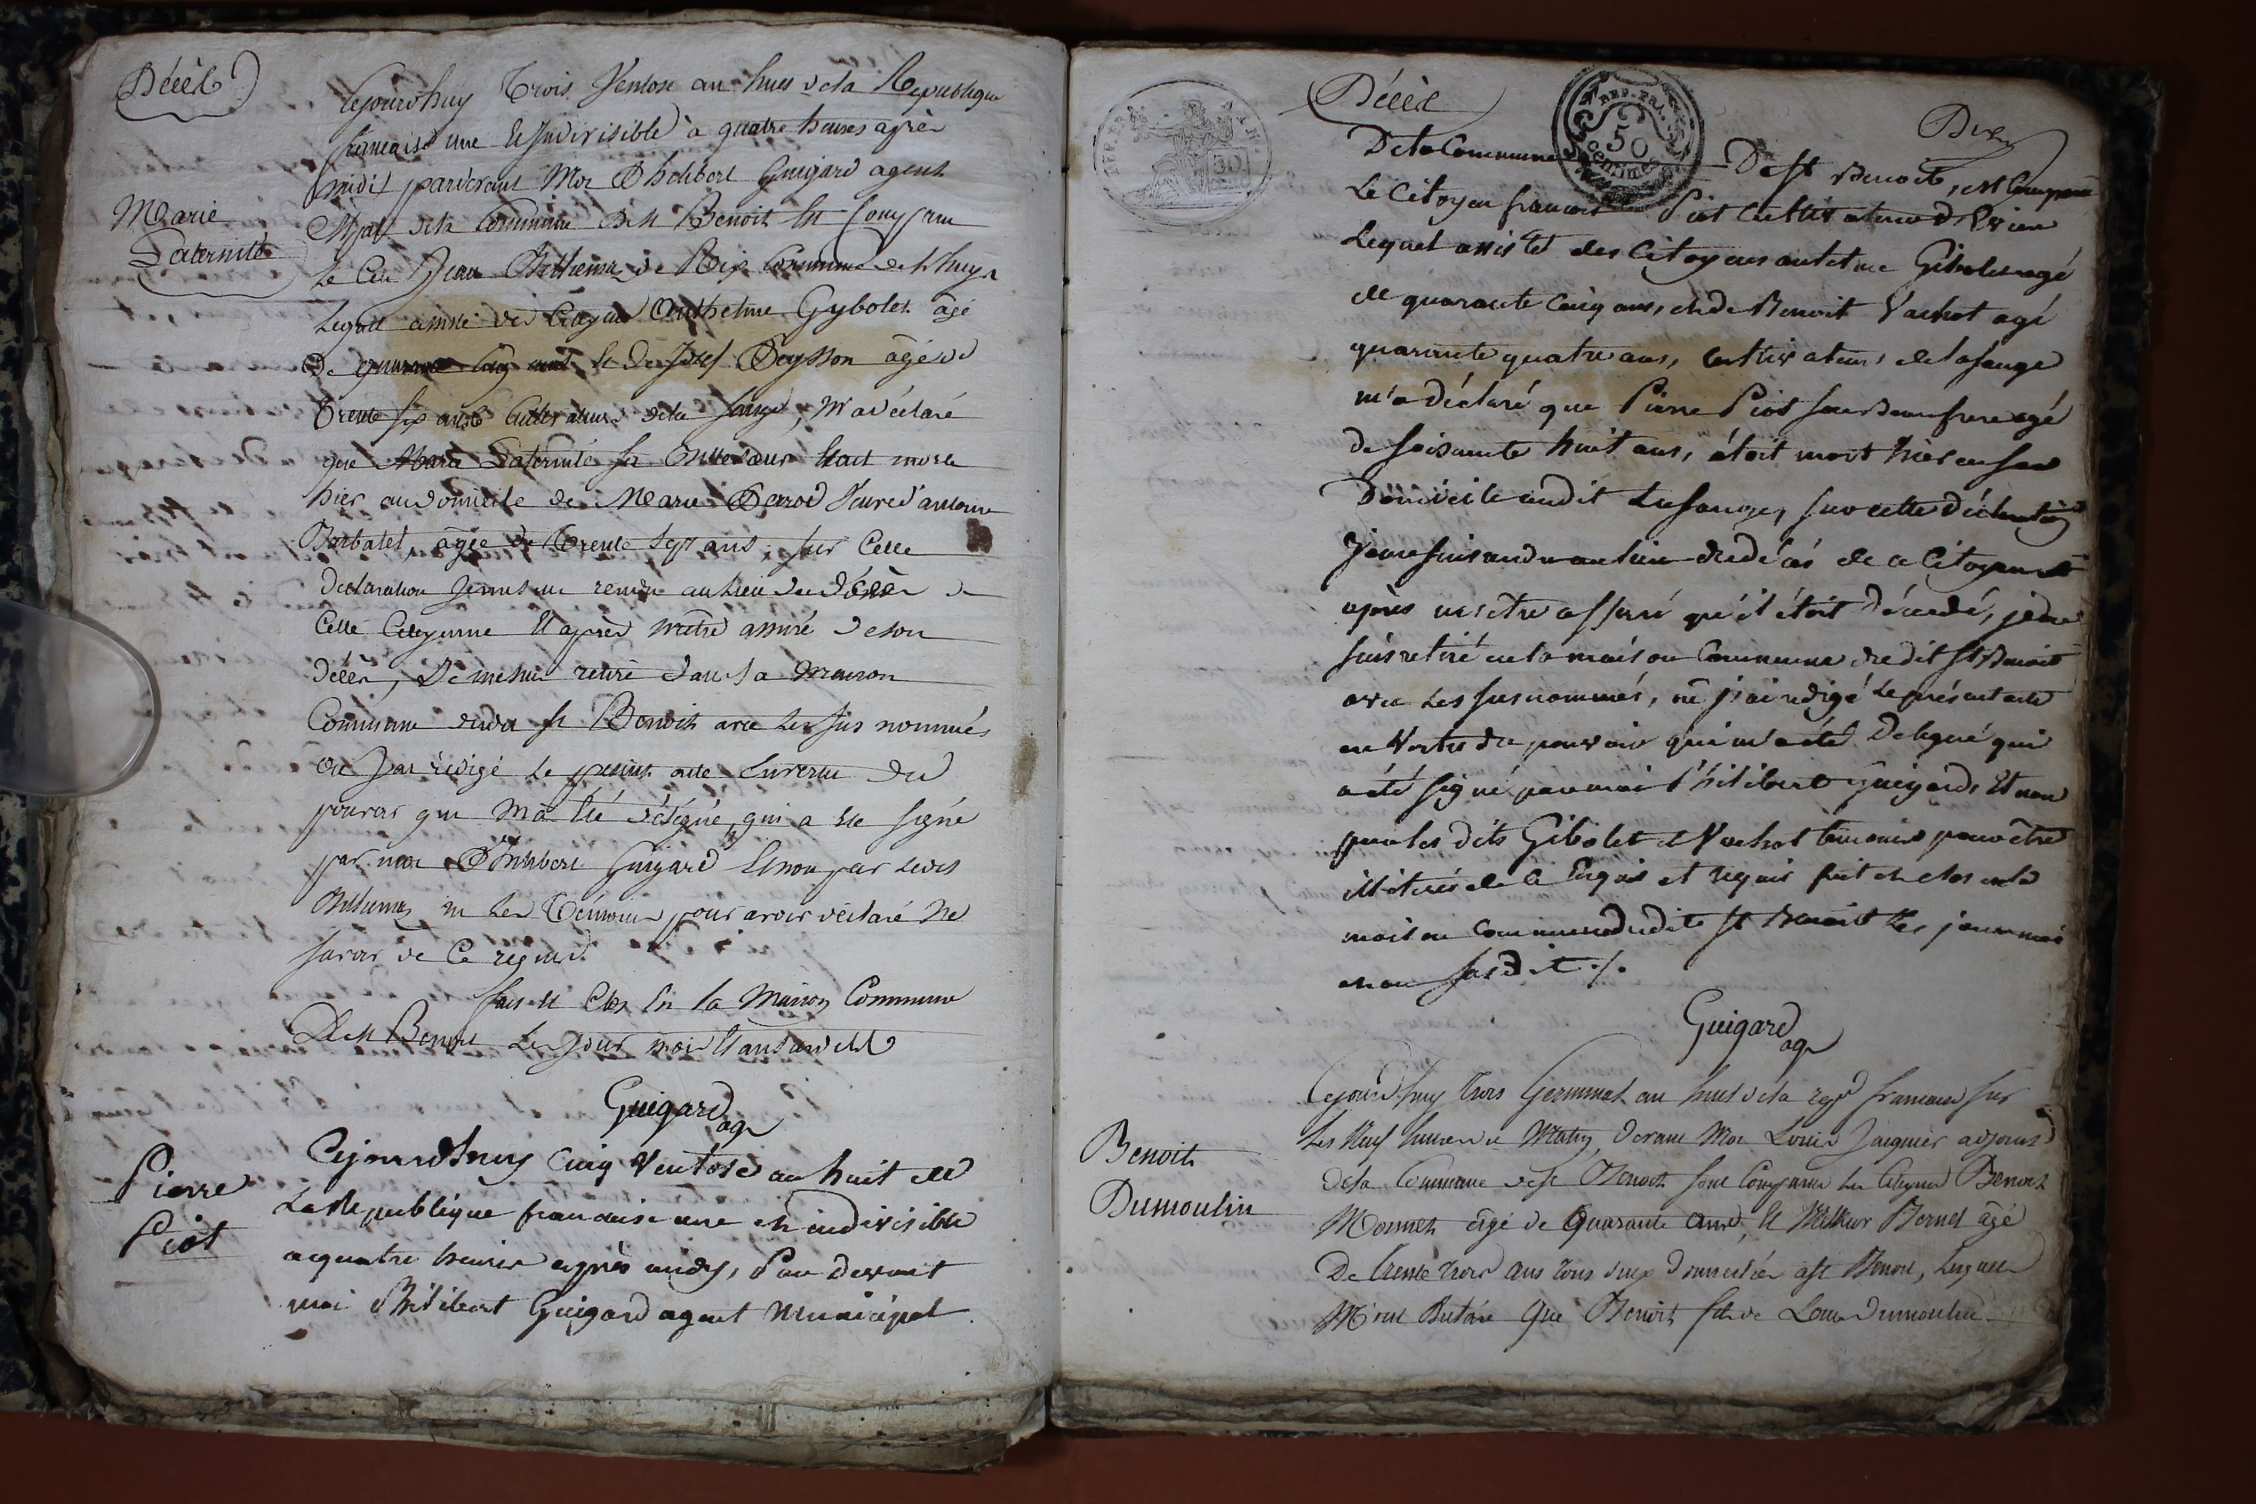 Décès
Cejourdhuy Trois Ventose an huit de la Republique
française une et Indivisible à quatre heures après
midi pardevant Moi Philibert Guigard agent
Mpal de la Commune de St Benoit est Comparu
Marie
Paternité
Le Cen Jean
Lequel assisté des Citoyens Anthelme Gybolet âgé
De quarante Cinq ans et de Josef Peysson âgé de
trente six ans Cultivateurs de la sauge, M'a déclaré
que Marie Paternité sa etait morte
hier au domicile de Marie veuve d'antoine
Barbatet, âgée de Trente Sept ans; sur Cette
Declaration Je me suis rendu au Lieu du Décès de
Cette Citoyenne Et après m'etre assuré de son
Décès, Je me suis retiré dans la Maison
Commune dudit St Benoit avec Les sus nommés
où J'ai rédigé Le présent acte En vertu du
pouvoir qui M'a Eté délégué, qui a été signé
par moi Philibert Guigard Et non par ledit
ni Les Témoins pour avoir déclaré Ne
savoir de Ce requis
fait et Clos En la Maison Commune
De St Benoit Les Jour mois et an susdits
Guigard
ag
Pierre
Piot
Cejourdhuy Cinq Ventôse an huit de
La Republique francaise une et indivisible
a quatre heures après midy, Par devant
moi Philibert Guigard agent Municipal
Décès
REP. FRA.
50
centimes
De la Commune De St Benoit, est Comparu
Le Citoyen francois Piot Cultivateur
Lequel assisté des Citoyens antelme Gibolet agé
de quarante Cinq ans, et de Benoit Vachot agé
quarante quatre ans, Cultivateurs de la sauge
m'a déclaré que Pierre Piot son Beaufrere agé
de soixante huit ans, étoit mort hier en son
Domicile audit Lasauge, sur cette déclaration
je me suis rendu au lieu du décés de ce Citoyen et
après m'etre assuré qu'il étoit décedé, je me
suis retiré en la maison Commune dudit St Benoit
avec Les susnommés, où j'ai redigé Le présent acte
en Vertu du pouvoir qui m'a été Delegué qui
a été signé par moi Philibert Guigard, Et non
par les dits Gibolet et Vachot temoins pour être
illiterés de Ce Enquis et requis fait et clos en la
maison Commune dudit St Benoit Les jour mois
et an susdit ./.
Guigard
ag
Benoit
Dumoulin
Cejourd'huy trois Germinal an huit de la rep. francaise sur
Les Neuf heures du Matin, devant Moi Louis Jacquier adjoint
de la Commune de St Benoit sont Comparu les Citoyens Benoit
âgé de Quarante Ans, et Bernet âgé
De trente trois Ans tous deux Domiciliés à St Benoit, Lesquels
M'ont Declaré Que Benoit fils de Louis Dumoulin